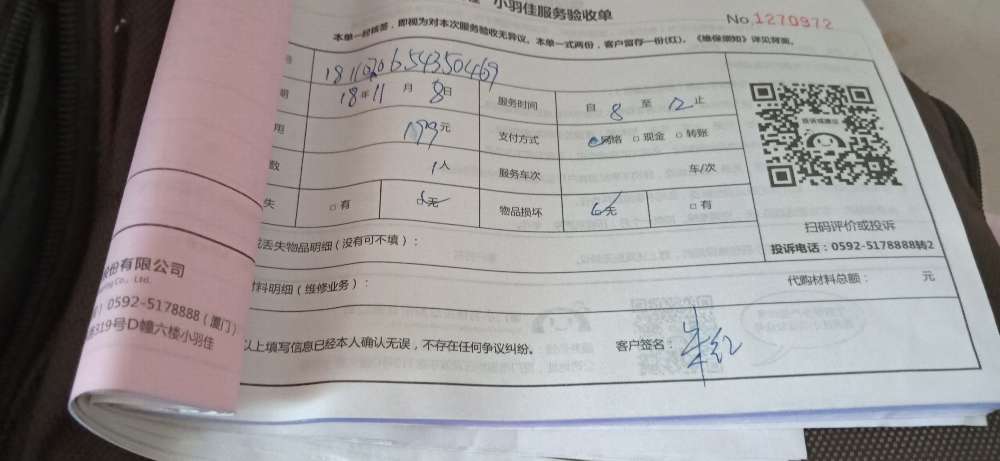 小羽佳服务验收单
No.1270972
本单一经核签，即视为对本次服务验收无异议。本单一式两份，客户留存一份(红)。《维保须知》详见背面。
18年11月8日 服务时间 自 8 至 12 止
用 199元 支付方式 网络 □ 现金 □ 转账
数 1人 服务车次 车/次
失 □ 有 无 物品损坏 无 □ 有
投诉或建议
扫码评价或投诉
投诉电话：0592-5178888转2
丢失物品明细（没有可不填）：
材料明细（维修业务）： 代购材料总额： 元
以上填写信息已经本人确认无误，不存在任何争议纠纷。 客户签名：
份有限公司
Co., Ltd.
0592-5178888（厦门）
319号D幢六楼小羽佳